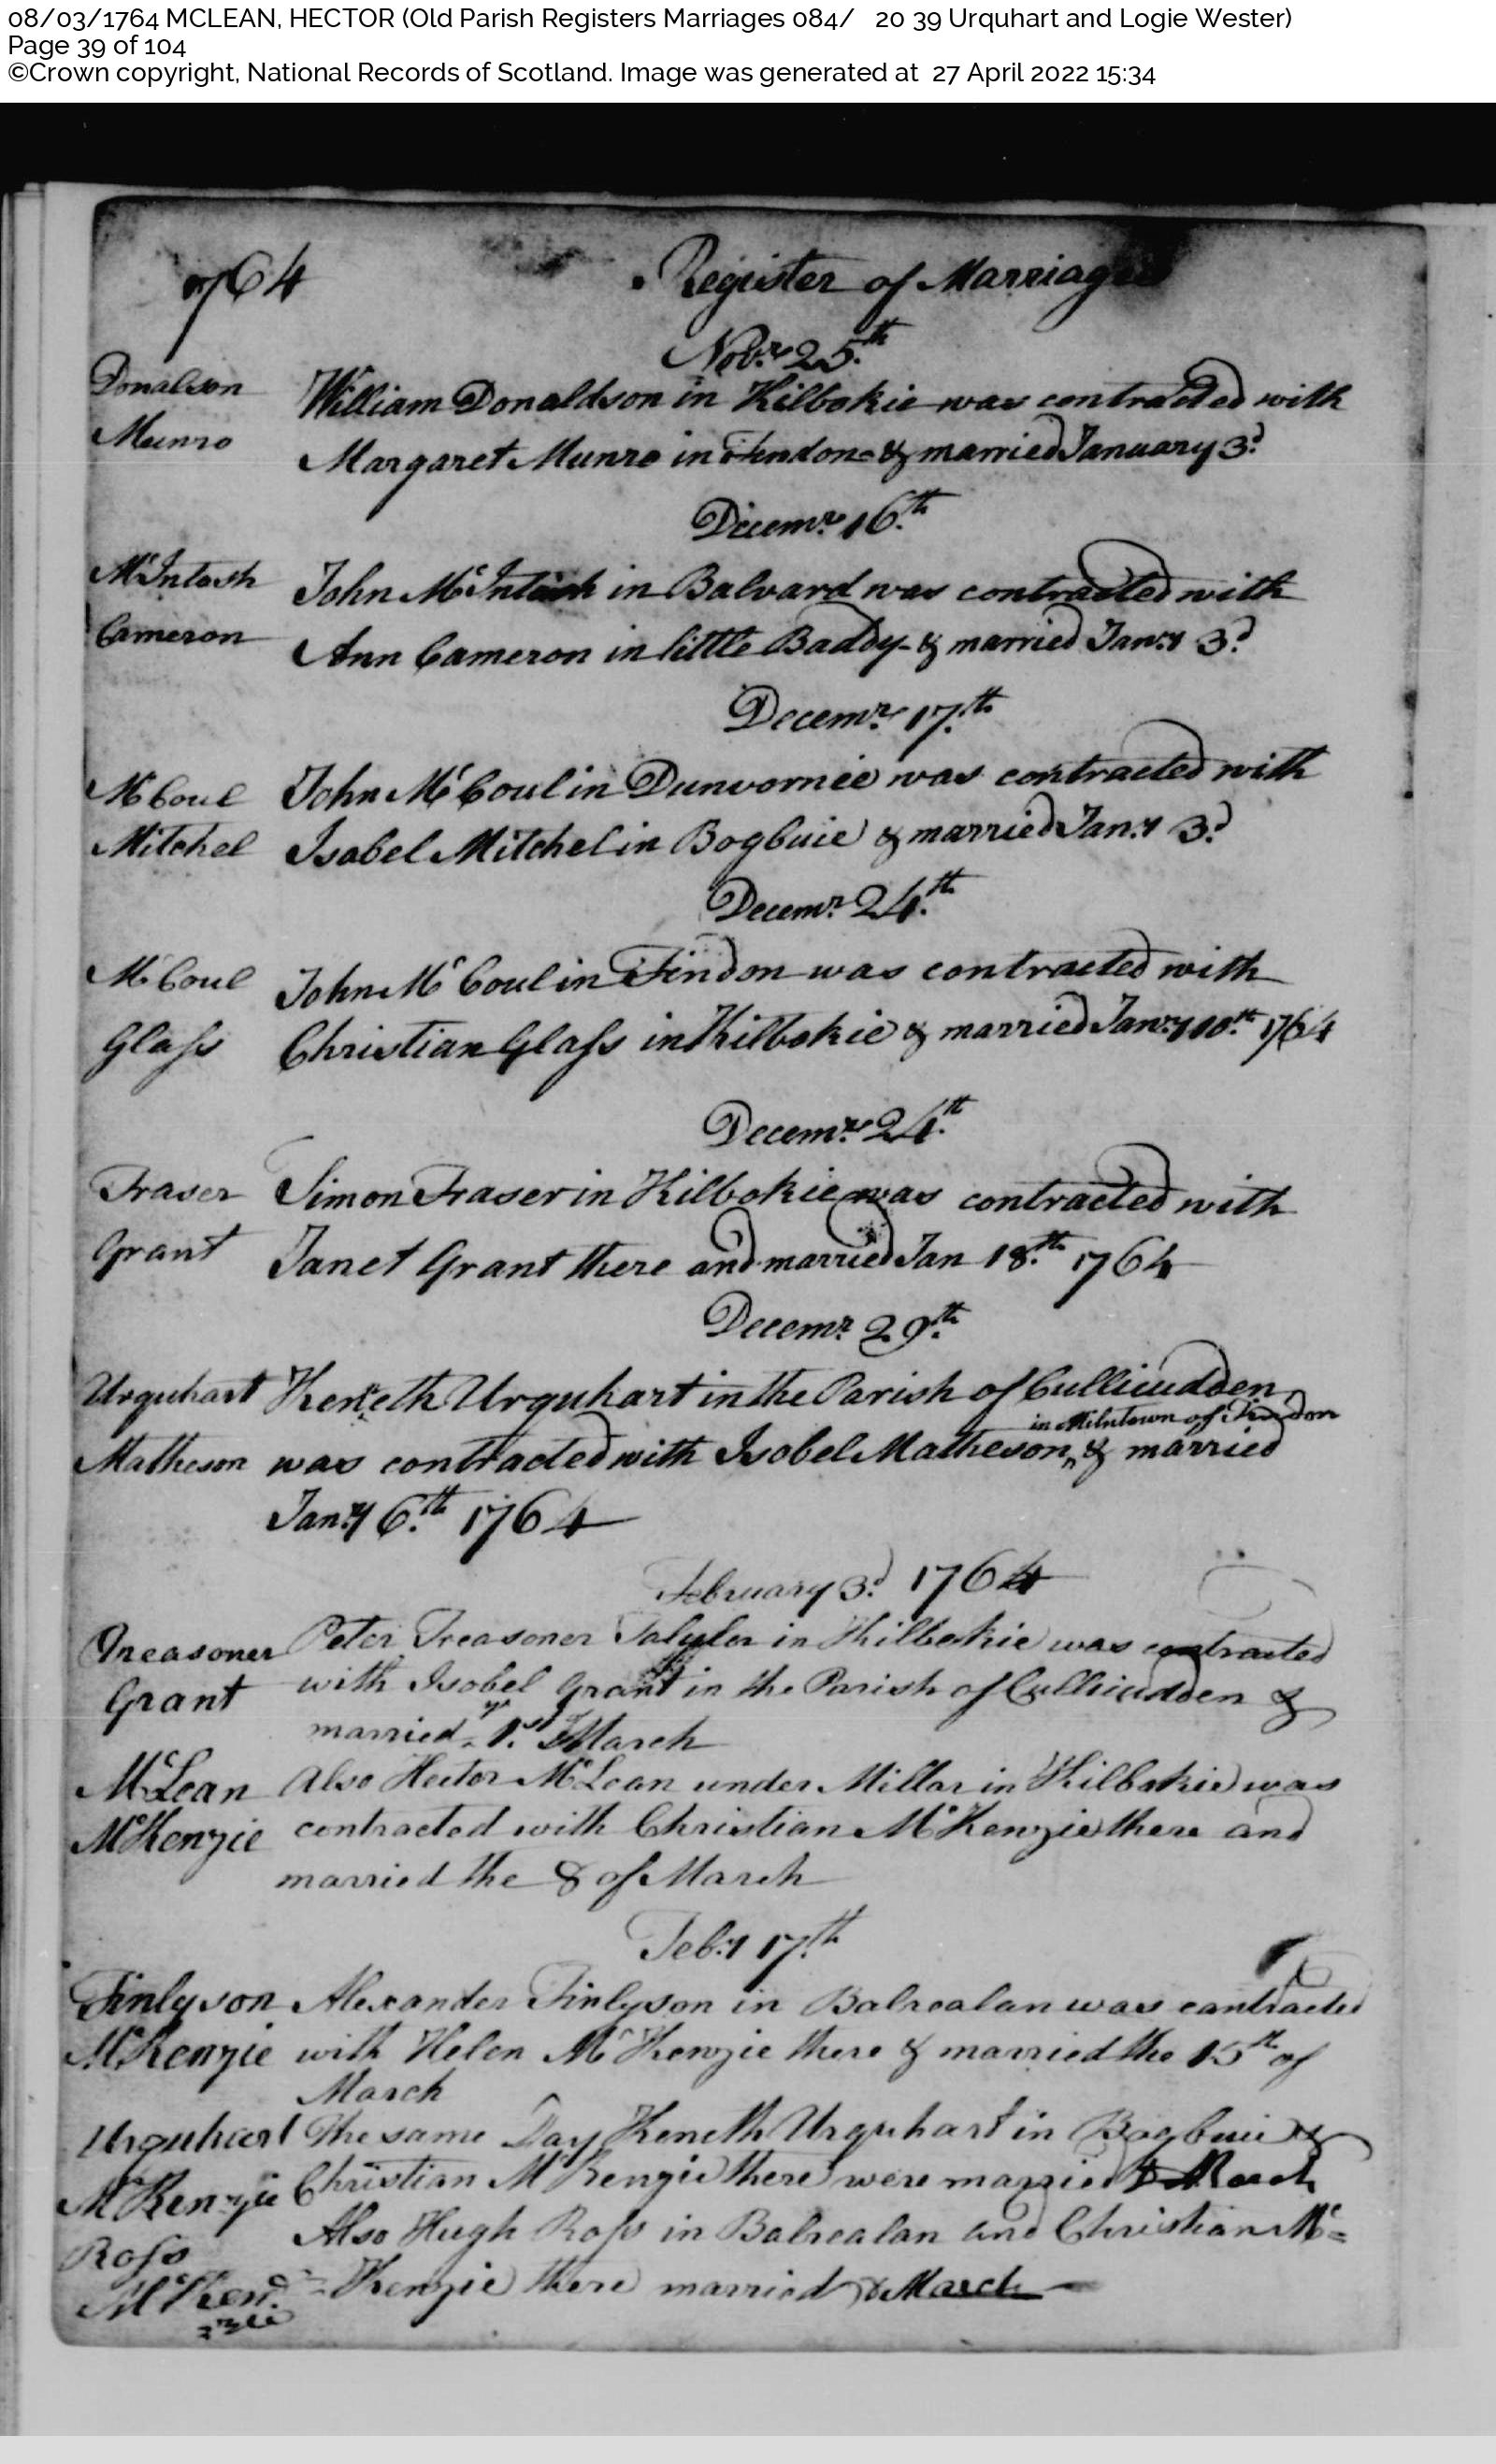 08/03/1764 MCLEAN, HECTOR (Old Parish Registers Marriages 084/ 20 39 Urquhart and Logie Wester)
Page 39 of 104
©Crown copyright, National Records of Scotland. Image was generated at 27 April 2022 15:34
1764 Register of Marriages
Novr. 25th
Donalson William Donaldson in Kilbokie was contracted with
Munro Margaret Munro in Findon & married January 3d
Decemr. 16th
McIntosh John McIntosh in Balvard was contracted with
Cameron Ann Cameron in little Baddy & married Jany 3d
Decemr. 17th
McCoul John McCoul in Dunvornie was contracted with
Mitchel Isabel Mitchel in Bogbuie & married Jany 3d
Decemr. 24th
McCoul John McCoul in Findon was contracted with
Glass Christian Glass in Kilbokie & married Jany 10th 1764
Decemr. 24th
Fraser Simon Fraser in Kilbokie was contracted with
Grant Janet Grant there and married Jan 18th 1764
Decemr. 29th
Urquhart Keneth Urquhart in the Parish of Cullicudden
in Milntown of Findon
Matheson was contracted with Isobel Matheson & married
Jany 6th 1764
February 3d 1764
Treasoner Peter Treasoner in Kilbokie was contracted
Grant with Isobel Grant in the Parish of Cullicudden &
married ye 1st March
McLean Also Hector McLean under Millar in Kilbokie was
McKenzie contracted with Christian McKenzie there and
married the 8 of March
Feby 17th
Finlyson Alexander Finlyson in Balrealan was contracted
McKenzie with Helen McKenzie there & married the 15th of
March
Urquhart The same Day Keneth Urquhart in Bogbuie &
McKenzie Christian McKenzie there were married March
Ross Also Hugh Ross in Balrealan and Christian Mc=
McKen=zie =Kenzie there married March